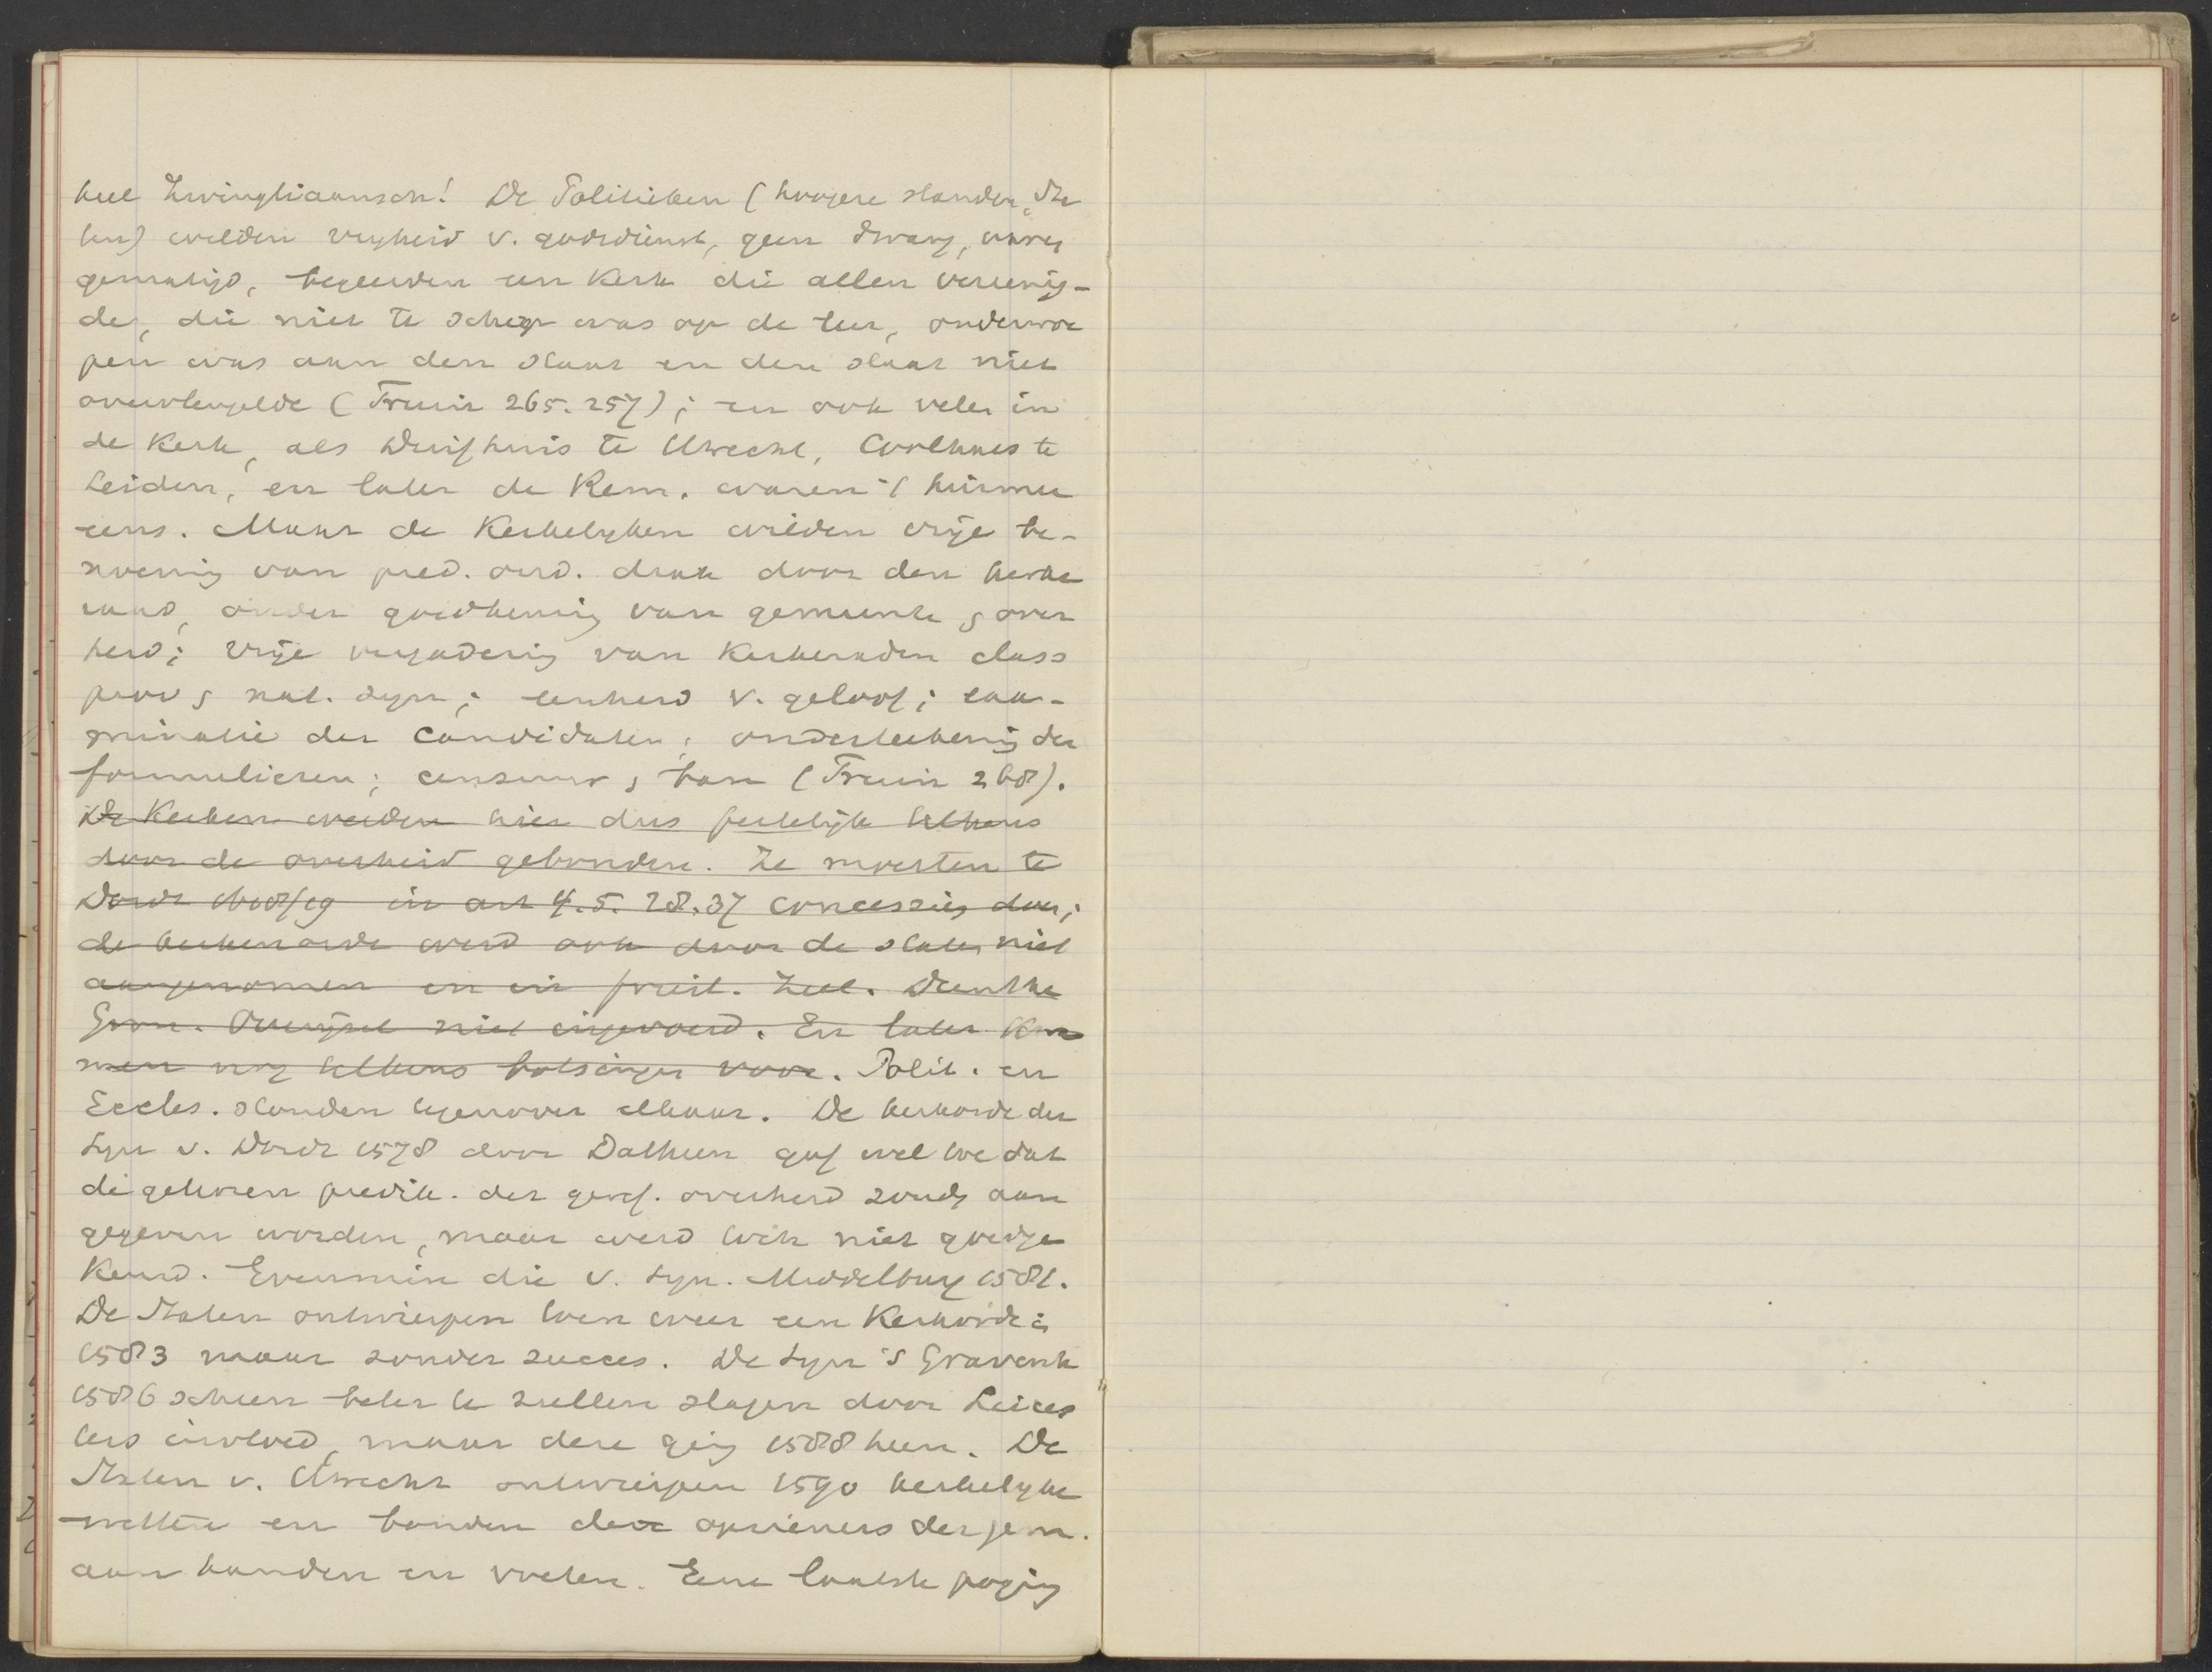 heel Zwingliaansch! De Politieken (hoogere standen, Sta
ten) wilden vryheid v. godsdienst, geen dwang, waren
gematigd, begeerden een Kerk die allen vereenig-
de, die niet te scherp was op de leer, onderwor
pen was aan den staat en den staat niet
overvleugelde (Fruin 265. 257); en ook velen in
de Kerk, als Duifhuis te Utrecht, Coolhaes te
Leiden, en later de Rem. waren 't hiermee
eens. Maar de Kerkelyken wilden vrije be-
roeping van pred. oud. diak door den kerke
raad, onder goedkeuring van gemeente & over
heid; vrije vergadering van Kerkeraden class
prov & nat. syn; eenheid v. geloof; exa-
minatie der Candidaten; onderteekening der
formulieren; censuur & ban (Fruin 268).
De Kerken werden hier dus feitelijk telkens
door de overheid gebonden. Ze moesten te
Dordt 1618/19 in art 4. 5. 28. 37 concessies doen;
de kerkenorde werd ook door de staten niet
aangenomen en in friesl. Zeel. Drenthe
Gron. Overijsel niet ingevoerd. En later kwa
men nog telkens botsingen voor. Polit. en
Eccles. stonden tegenover elkaar. De kerkorde der
Syn v. Dordt 1578 door Datheen gaf wel toe dat
de gekozen predik. der geref. overheid zoudn aan
gegeven worden, maar werd toch niet goedge
keurd. Evenmin die v. Syn. Middelburg 1581.
De Staten ontwierpen toen weer een Kerkorde in
1583 maar zonder succes. De Syn 's Gravenh
1586 scheen beter te zullen slagen door Leices
ters invloed, maar deze ging 1588 heen. De
Staten v. Utrecht ontwierpen 1590 kerkelyke
wetten en bonden de opzieners der gem.
aan handen en voeten. Eene laatste poging